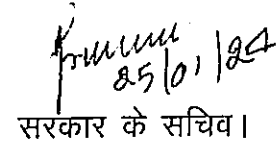 25/01/24
सरकार के सचिव।